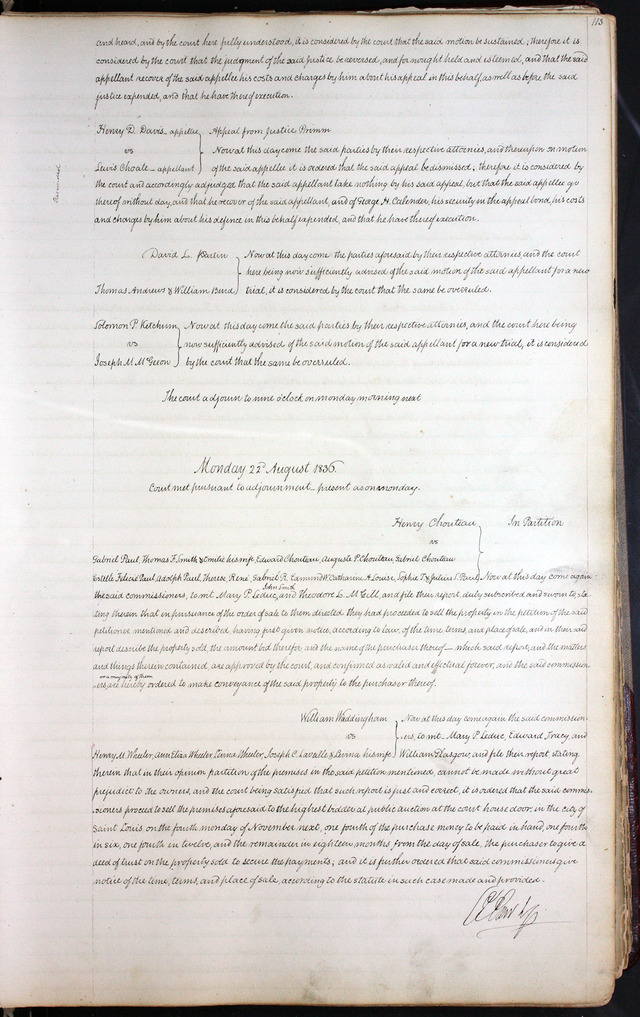 113
and heard, and by the court here fully understood, it is considered by the court that the said motion be sustained; therefore it is
considered by the court that the judgment of the said justice be reversed, and for nought held and esteemed, and that the said
appellant recover of the said appellee his costs and charges by him about his appeal in this behalf as well as before the said
justice expended, and that he have thereof execution.
Henry D. Davis appellee
vs
Lewis Choate appellant
Appeal from Justice Primm
Now at this day come the said parties by their respective attornies, and thereupon on motion
of the said appellee it is ordered that the said appeal be dismissed; therefore it is considered by
the court and accordingly adjudged that the said appellant take nothing by his said appeal, but that the said appellee go
thereof without day, and that he recover of the said appellant, and of George H. Callender, his security in the appeal bond, his costs
and charges by him about his defence in this behalf expended, and that he have thereof execution.
David L.
Thomas Andrews & William Burd
Now at this day come the parties aforesaid by their respective attornies, and the court
here being now sufficiently advised of the said motion of the said appellant for a new
trial, it is considered by the court that the same be overruled.
Solomon P. Ketchum
vs
Joseph M. McGeeon
Now at this day come the said parties by their respective attornies, and the court here being
now sufficiently advised of the said motion of the said appellant for a new trial, it is considered
by the court that the same be overruled.
The court adjourn to nine o'clock on monday morning next
Monday 22d August 1836.
Court met pursuant to adjournment present as on monday.
Henry Chouteau
vs
In Partition
Gabriel Paul, Thomas F. Smith & Emilie his wife, Edward Chouteau, Auguste P. Chouteau, Gabriel Chouteau
Estelle Felicie Paul, Adolph Paul, Therese, René, Gabriel R. Edmund W. Catharine A. Louise, Sophie T. & Julius S. Paul
Now at this day come again
the said commissioners, to wit Mary P. Leduc, John Smith and Theodore L. McGill, and file their report, duly subscribed and sworn to, sta-
ting therein that in pursuance of the order of sale to them directed they had proceeded to sell the property in the petition of the said
petitioner mentioned and described, having first given notice, according to law, of the time terms, and place of sale, and in their said
report describe the property sold, the amount bid therefor, and the name of the purchaser thereof which said report, and the matters
and things therein contained, are approved by the court, and confirmed as valid and effectual forever, and the said commission-
ers or a majority of them are hereby ordered to make conveyance of the said property to the purchaser thereof.
William Waddingham
vs
Henry M. Wheeler, Ann Eliza Wheeler, Anna Wheeler, Joseph C. Lavalle & Lavina his wife
Now at this day come again the said commission-
ers, to wit Mary P. Leduc, Edward Tracy, and
William Glasgow, and file their report, stating
therein that in their opinion partition of the premises in the said petition mentioned, cannot be made without great
prejudice to the owners, and the court being satisfied that such report is just and correct, it is ordered that the said commis-
sioners proceed to sell the premises aforesaid to the highest bidder at public auction at the court house door, in the city of
Saint Louis on the fourth monday of November next, one fourth of the purchase money to be paid in hand, one fourth
in six, one fourth in twelve, and the remainder in eighteen months, from the day of sale, the purchaser to give a
deed of trust on the property sold to secure the payments; and it is further ordered that said commissioners give
notice of the time, terms, and place of sale, according to the statute in such case made and provided.